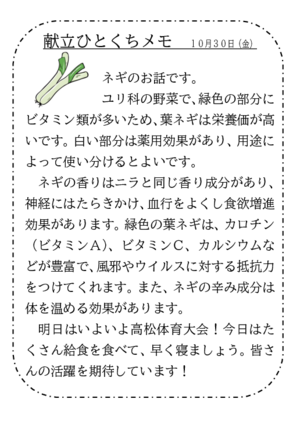 献立ひとくちメモ 10月30日(金)
ネギのお話です。
ユリ科の野菜で、緑色の部分に
ビタミン類が多いため、葉ネギは栄養価が高
いです。白い部分は薬用効果があり、用途に
よって使い分けるとよいです。
ネギの香りはニラと同じ香り成分があり、
神経にはたらきかけ、血行をよくし食欲増進
効果があります。緑色の葉ネギは、カロチン
（ビタミンA）、ビタミンC、カルシウムな
どが豊富で、風邪やウイルスに対する抵抗力
をつけてくれます。また、ネギの辛み成分は
体を温める効果があります。
明日はいよいよ高松体育大会！今日はた
くさん給食を食べて、早く寝ましょう。皆さ
んの活躍を期待しています！